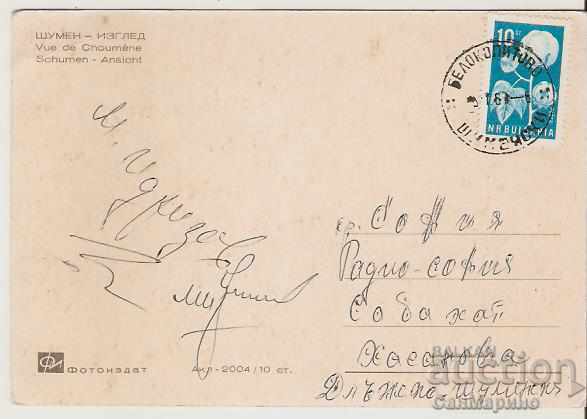 ШУМЕН – ИЗГЛЕД
Vue de Choumène
Schumen - Ansicht
10 ст
NR BULGARIA
БЕЛОКОПИТОВО
ШУМЕНСКИ
М.
гр. София
Радио-софия
Сабахат
Хасанова
Длъжко-шуменск
Фотоиздат
Акл-2004/10 ст.
BALKAN
auction
Санмарино